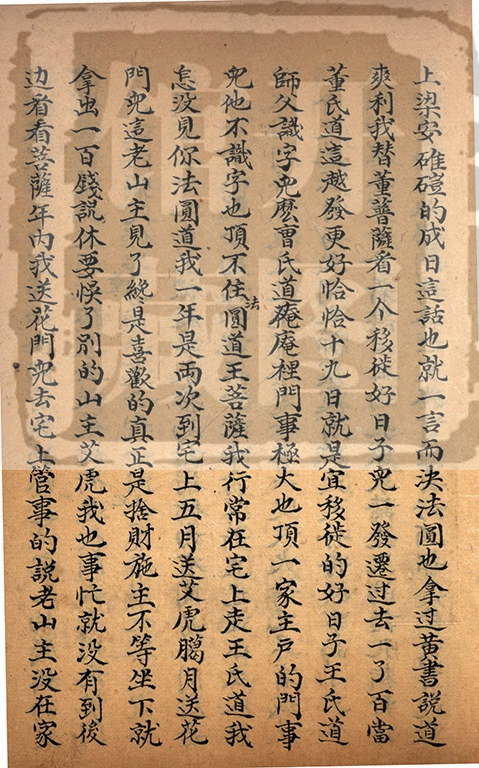 上梁安碓磑的成日這話也就一言而決法圓也拿过黄書說道
爽利我替董菩薩看一个移徙好日子兒一發遷过去一了百當
董氏道這越發更好恰恰十九日就是宜移徙的好日子王氏道
師父識字兒麽曹氏道庵庵裡門事極大也頂一家主戶的門事
兒他不識字也頂不住法圓道王菩薩我行常在宅上走王氏道我
怎没見你法圓道我一年是两次到宅上五月送艾虎臈月送花
門兒這老山主見了總是喜歡的真正是捨財施主不等坐下就
拿出一百錢説休要悞了別的山主艾虎我也事忙就没有到後
边看看菩薩年内我送花門兒去宅上管事的説老山主没在家